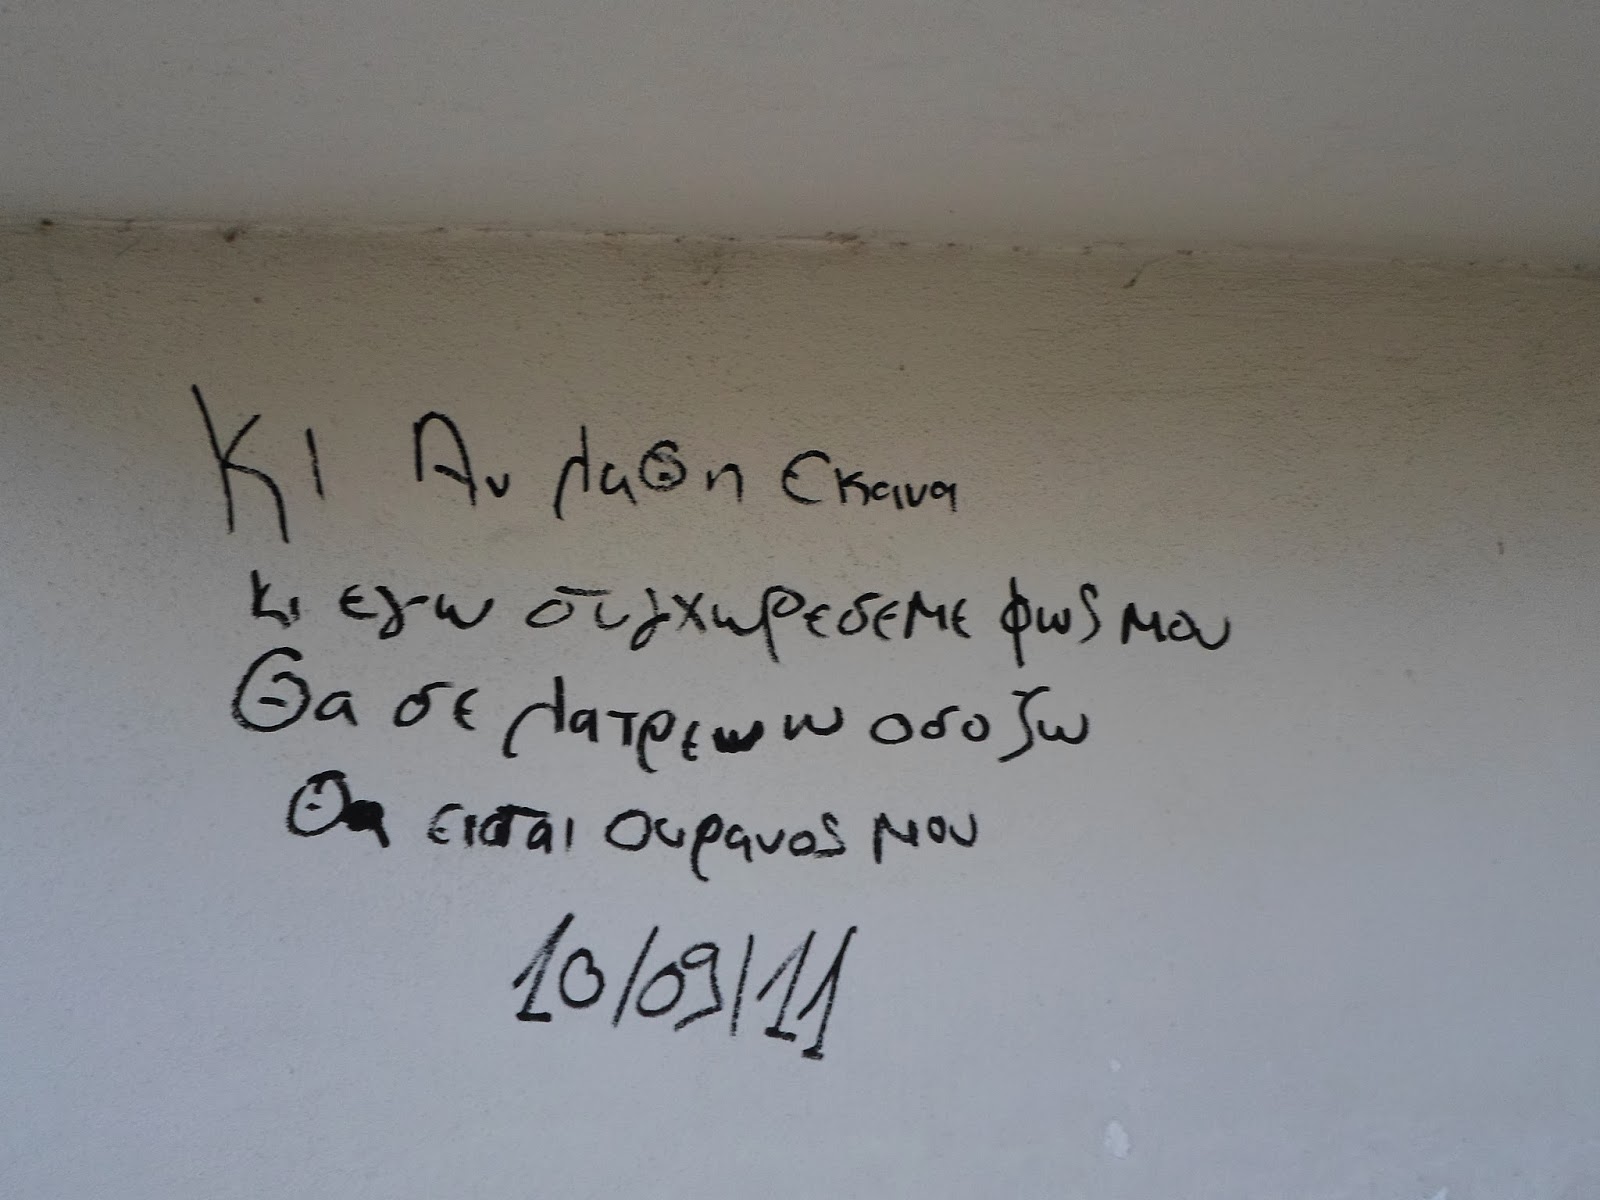 Κι Αν λαθη εκανα
κι εγω συγχωρεσεμε φως μου
Θα σε λατρεωω οσο ζω
Θα εισαι ουρανος μου
10/09/11